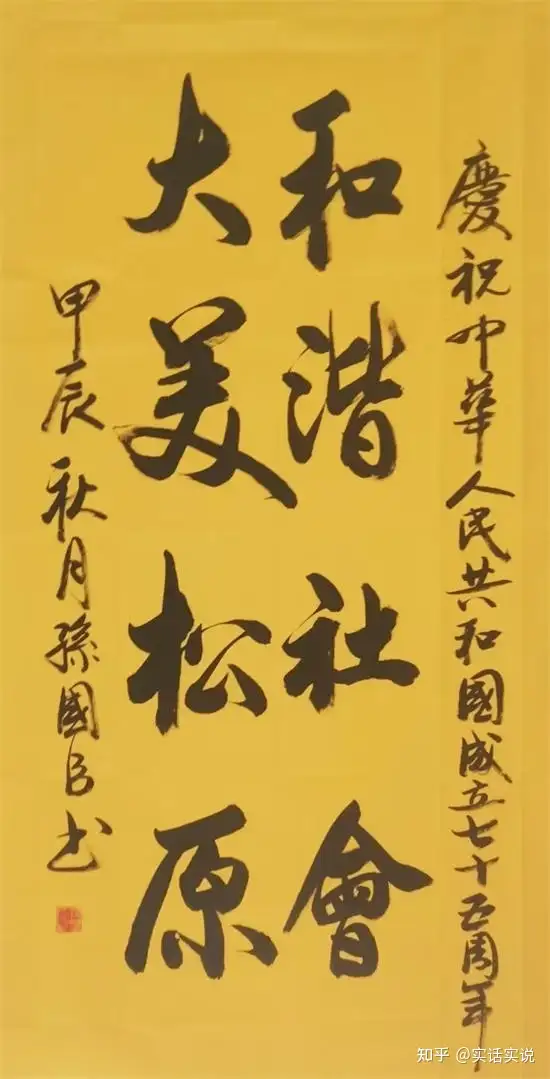 慶祝中華人民共和國成立七十五周年
和谐社會
大美松原
甲辰秋月孫國书
知乎 @实话实说